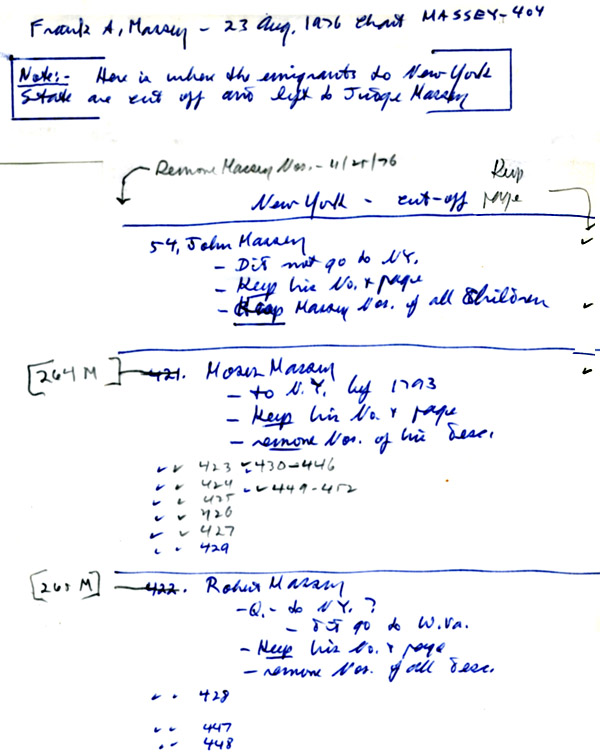 Frank A. Massey - 23 Aug. 1976 Chart MASSEY-404
Note:- Here is where the emigrants to New York
State are cut off and left to Judge Massey
Remove Massey Nos. - 11/25/76
Keep
New York - cut-off page
54, John Massey
- Did not go to N.Y.
- Keep his No. & page
- Keep Massey Nos. of all Children
[264 M] 421. Moses Massey
- to N.Y. by 1793
- Keep his No. & page
- remove Nos. of his desc.
423 430-446
424 449-452
425
426
427
429
[265 M] 422. Robert Massey
- Q. - to N.Y. ?
- did go to W.Va.
- Keep his No. & page
- remove Nos. of all desc.
428
447
448